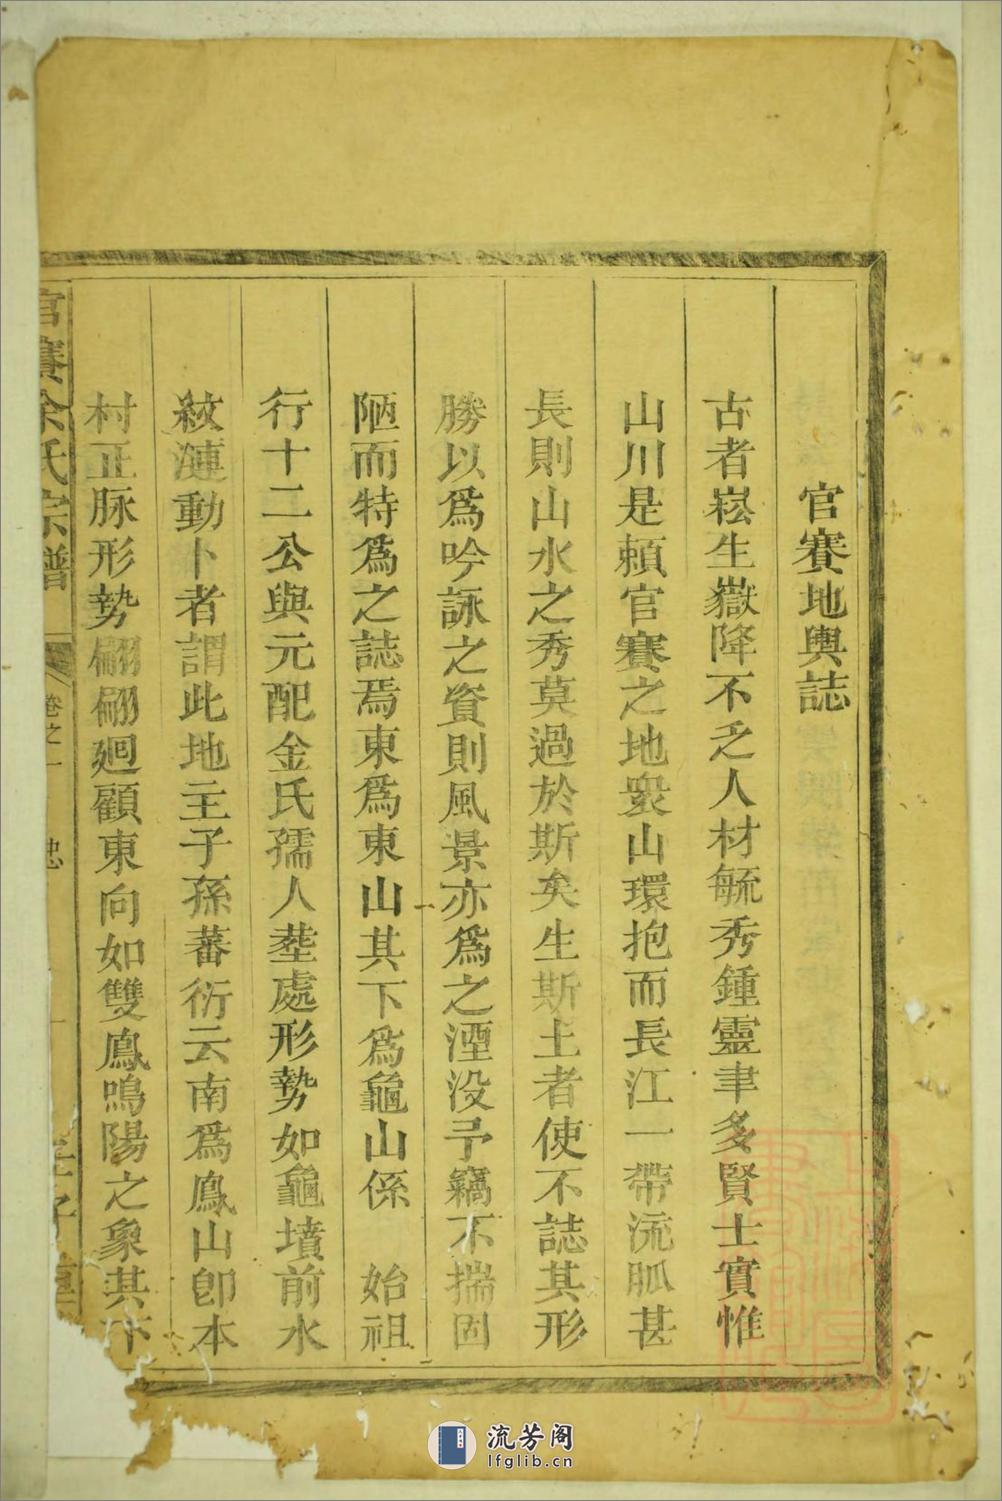 官賽地輿誌
古者崧生嶽降不乏人材毓秀鍾靈聿多賢士實惟
山川是賴官賽之地衆山環抱而長江一帶流脈甚
長則山水之秀莫過於斯矣生斯土者使不誌其形
勝以爲吟詠之資則風景亦爲之湮没予竊不揣固
陋而特爲之誌焉東爲東山其下爲龜山係 始祖
行十二公與元配金氏孺人塟處形勢如龜墳前水
紋漣動卜者謂此地主子孫蕃衍云南爲鳳山卽本
村正脉形勢翩翩廻顧東向如雙鳳鳴陽之象其下
官賽余氏宗譜 卷之一
流芳阁
lfglib.cn